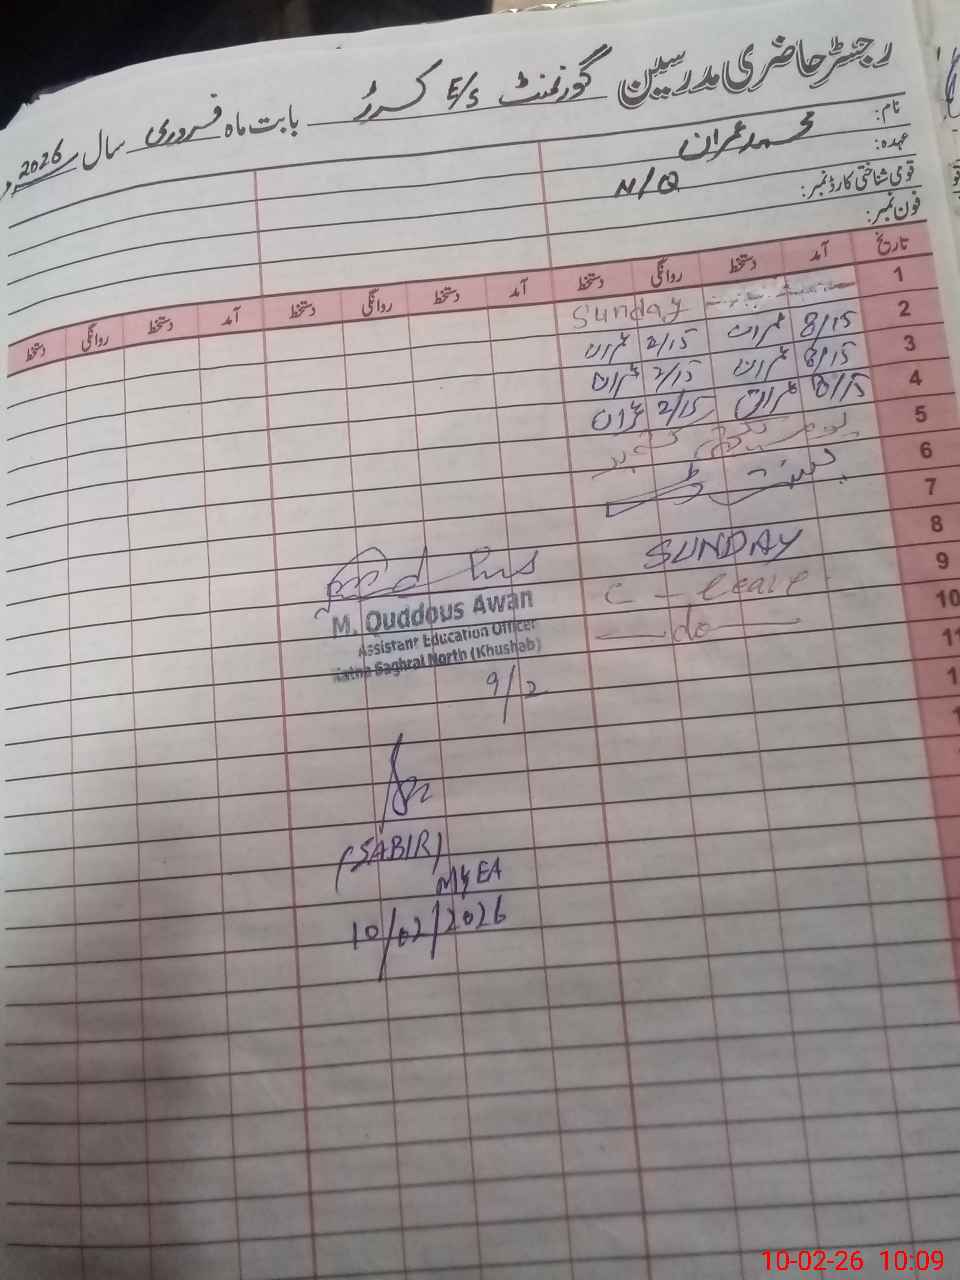 رجسٹر حاضری مدرسین گورنمنٹ E/S کررُ بابت ماہ فروری سال 2026
نام: محمد عمران
عہدہ: N/Q
قومی شناختی کارڈ نمبر:
فون نمبر:
تاریخ آمد دستخط روانگی دستخط آمد دستخط روانگی دستخط آمد دستخط روانگی دستخط
1 Sunday
2 8/15 عمران 2/15 عمران
3 8/15 عمران 2/15 عمران
4 8/15 عمران 2/15 عمران
5 یوم یکجہتی کشمیر
6
7
8 SUNDAY
9 C - leave
10 — do —
11
M. Quddous Awan
Assistant Education Officer
Saghral North (Khushab)
9/2
(SABIR)
MEA
10/02/2026
10-02-26 10:09